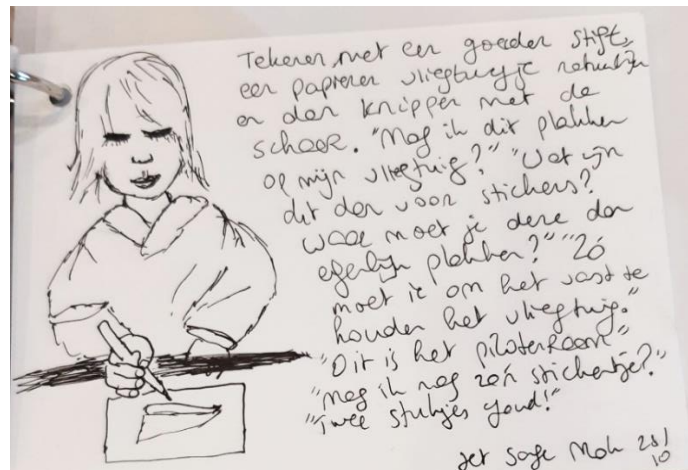 Tekenen met een gouden stift,
een papieren vliegtuigje natuurlijk
en dan knippen met de
schaar. "Mag ik dit plakken
op mijn vliegtuig?" "Wat zijn
dit dan voor stickers?
Waar moet je deze dan
eigenlijk plakken?" "Zó
moet ie om het vast te
houden het vliegtuig."
"Dit is het pilotenraam"
"mag ik nog zo'n stickertje?"
"Twee stukjes goud!"
28/10